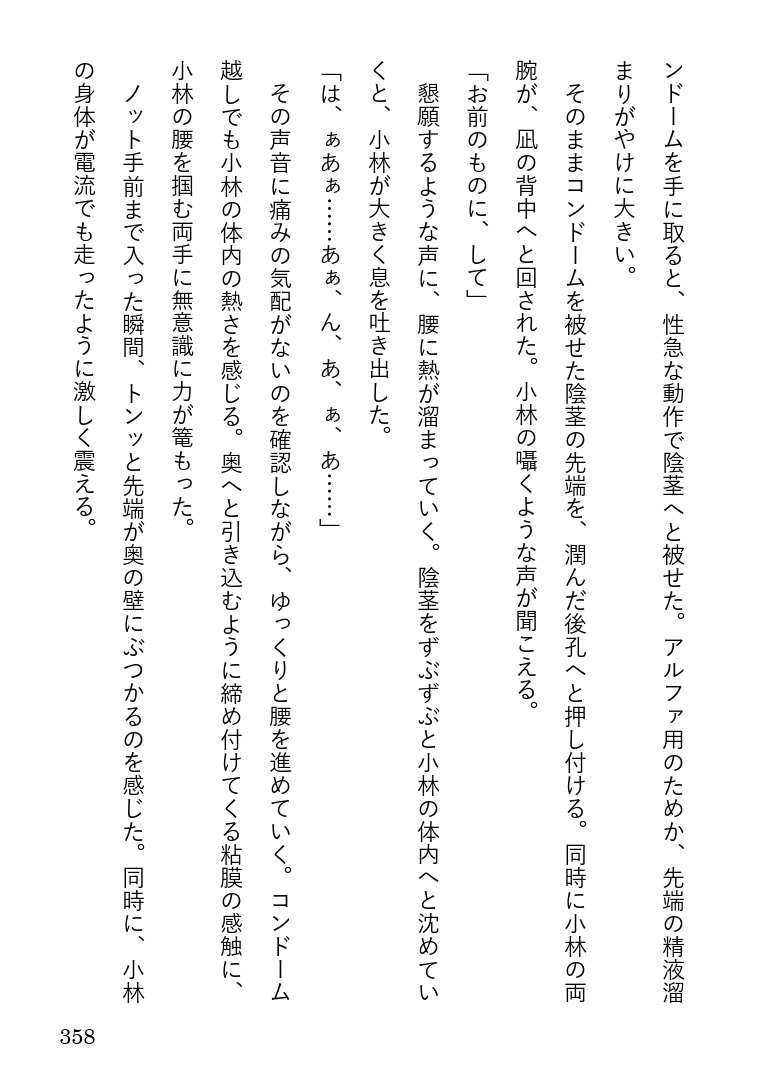 ンドームを手に取ると、性急な動作で陰茎へと被せた。アルファ用のためか、先端の精液溜
まりがやけに大きい。
　そのままコンドームを被せた陰茎の先端を、潤んだ後孔へと押し付ける。同時に小林の両
腕が、凪の背中へと回された。小林の囁くような声が聞こえる。
「お前のものに、して」
　懇願するような声に、腰に熱が溜まっていく。陰茎をずぶずぶと小林の体内へと沈めてい
くと、小林が大きく息を吐き出した。
「は、ぁあぁ……あぁ、ん、あ、ぁ、あ……」
　その声音に痛みの気配がないのを確認しながら、ゆっくりと腰を進めていく。コンドーム
越しでも小林の体内の熱さを感じる。奥へと引き込むように締め付けてくる粘膜の感触に、
小林の腰を掴む両手に無意識に力が篭もった。
　ノット手前まで入った瞬間、トンッと先端が奥の壁にぶつかるのを感じた。同時に、小林
の身体が電流でも走ったように激しく震える。
358